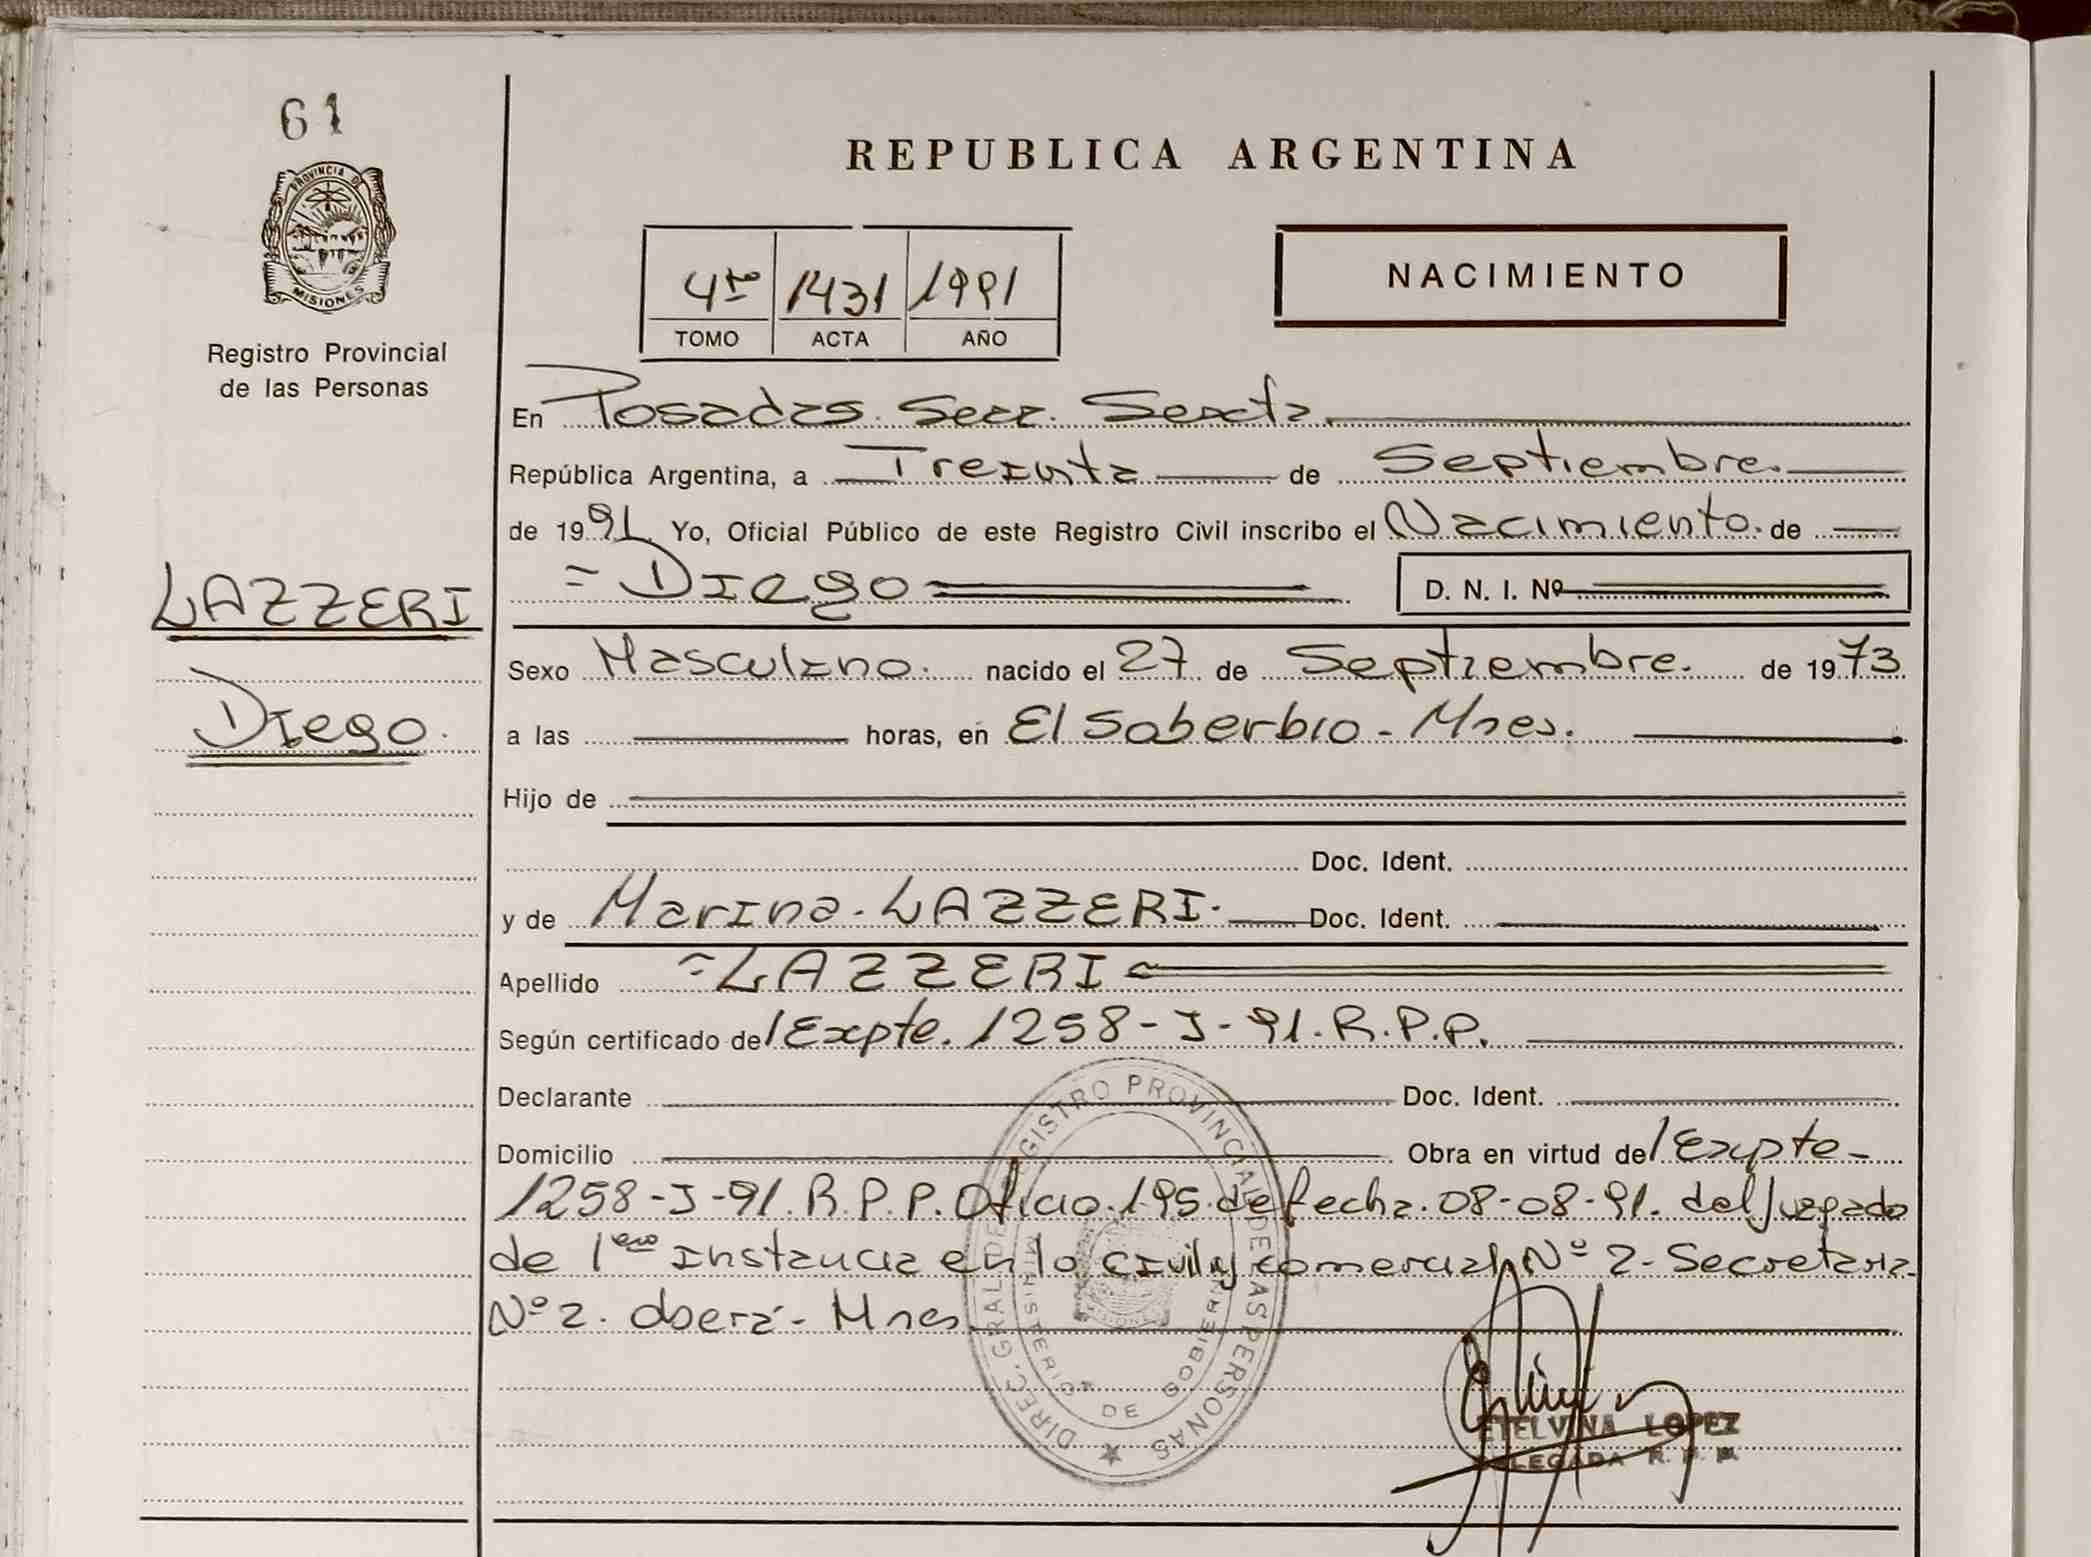 61
PROVINCIA DE
MISIONES
Registro Provincial
de las Personas
LAZZERI
Diego.
REPUBLICA ARGENTINA
4to 1431 1991
TOMO ACTA AÑO
NACIMIENTO
En Posadas. Secc. Sexta.
República Argentina, a Treinta de Septiembre.
de 1991. Yo, Oficial Público de este Registro Civil inscribo el Nacimiento. de
= Diego = D. N. I. Nº
Sexo Masculino. nacido el 27 de Septiembre. de 1973
a las horas, en El Soberbio - Mnes.
Hijo de
Doc. Ident.
y de Marina. LAZZERI. Doc. Ident.
Apellido =LAZZERI=
Según certificado de/Expte. 1258-J-91.R.P.P.
Declarante Doc. Ident.
Domicilio Obra en virtud de/Expte-
1258-J-91.R.P.P. Oficio.195.de fecha.08-08-91. del Juzgado
de 1era Instancia en lo Civil y comercial Nº 2- Secretaria
Nº 2. Oberá- Mnes.
DIREC. GRAL. DE REGISTRO PROVINCIAL DE LAS PERSONAS
MINISTERIO DE GOBIERNO
ETELVINA LOPEZ
DELEGADA R. P. P.